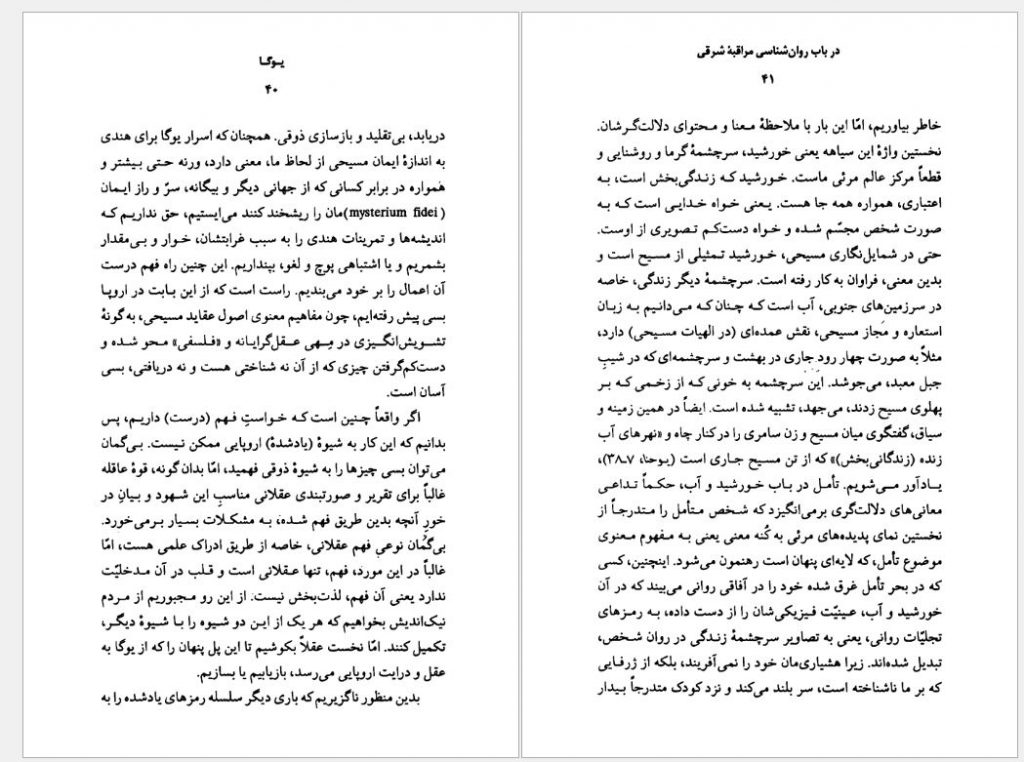 یوگا
۴۰
دریابد، بی‌تقلید و بازسازی ذوقی. همچنان‌که اسرار یوگا برای هندی
به اندازهٔ ایمان مسیحی از لحاظ ما، معنی دارد، ورنه حتی بیشتر و
همواره در برابر کسانی که از جهانی دیگر و بیگانه، سرّ و راز ایمان
(mysterium fidei)مان را ریشخند کنند می‌ایستیم، حق نداریم که
اندیشه‌ها و تمرینات هندی را به سبب غرابتشان، خوار و بی‌مقدار
بشمریم و یا اشتباهی پوچ و لغو، بپنداریم. این چنین راه فهم درست
آن اعمال را بر خود می‌بندیم. راست است که از این بابت در اروپا
بسی پیش رفته‌ایم، چون مفاهیم معنوی اصول عقاید مسیحی، به گونهٔ
تشویش‌انگیزی در مِهی عقل‌گرایانه و «فلسفی» محو شده و
دست‌کم‌گرفتن چیزی که از آن نه شناختی هست و نه دریافتی، بسی
آسان است.
اگر واقعاً چنین است که خواستِ فهم (درست) داریم، پس
بدانیم که این کار به شیوهٔ (یادشدهٔ) اروپایی ممکن نیست. بی‌گمان
می‌توان بسی چیزها را به شیوهٔ ذوقی فهمید، امّا بدان گونه، قوهٔ عاقله
غالباً برای تقریر و صورتبندی عقلانی مناسبِ این شهود و بیانِ در
خورِ آنچه بدین طریق فهم شده، به مشکلات بسیار برمی‌خورد.
بی‌گمان نوعی فهم عقلانی، خاصه از طریق ادراک علمی هست، امّا
غالباً در این مورد، فهم، تنها عقلانی است و قلب در آن مدخلیّت
ندارد یعنی آن فهم، لذت‌بخش نیست. از این رو مجبوریم از مردم
نیک‌اندیش بخواهیم که هر یک از این دو شیوه را با شیوهٔ دیگر،
تکمیل کنند. امّا نخست عقلاً بکوشیم تا این پل پنهان را که از یوگا به
عقل و درایت اروپایی می‌رسد، بازیابیم یا بسازیم.
بدین منظور ناگزیریم که باری دیگر سلسله رمزهای یادشده را به
در باب روان‌شناسی مراقبهٔ شرقی
۴۱
خاطر بیاوریم، امّا این بار با ملاحظهٔ معنا و محتوای دلالت‌گرشان.
نخستین واژهٔ این سیاهه یعنی خورشید، سرچشمهٔ گرما و روشنایی و
قطعاً مرکز عالم مرئی ماست. خورشید که زندگی‌بخش است، به
اعتباری، همواره همه جا هست. یعنی خواه خدایی است که به
صورت شخص مجسّم شده و خواه دست‌کم تصویری از اوست.
حتی در شمایل‌نگاری مسیحی، خورشید تمثیلی از مسیح است و
بدین معنی، فراوان به کار رفته است. سرچشمهٔ دیگر زندگی، خاصه
در سرزمین‌های جنوبی، آب است که چنان که می‌دانیم به زبان
استعاره و مجاز مسیحی، نقش عمده‌ای (در الهیات مسیحی) دارد،
مثلاً به صورت چهار رود جاری در بهشت و سرچشمه‌ای که در شیبِ
جبل معبد، می‌جوشد. این سرچشمه به خونی که از زخمی که بر
پهلوی مسیح زدند، می‌جهد، تشبیه شده است. ایضاً در همین زمینه و
سیاق، گفتگوی میان مسیح و زن سامری را در کنار چاه و «نهرهای آب
زنده (زندگانی‌بخش)» که از تن مسیح جاری است (یوحنا، ۷ـ۳۸)،
یادآور می‌شویم. تأمل در باب خورشید و آب، حکماً تداعی
معانی‌های دلالت‌گری برمی‌انگیزد که شخص متأمل را متدرجاً از
نخستین نمای پدیده‌های مرئی به کُنه معنی یعنی به مفهوم معنوی
موضوع تأمل، که لایه‌ای پنهان است رهنمون می‌شود. اینچنین، کسی
که در بحر تأمل غرق شده خود را در آفاقی روانی می‌بیند که در آن
خورشید و آب، عینیّت فیزیکی‌شان را از دست داده، به رمزهای
تجلیّات روانی، یعنی به تصاویر سرچشمهٔ زندگی در روان شخص،
تبدیل شده‌اند. زیرا هشیاری‌مان خود را نمی‌آفریند، بلکه از ژرفایی
که بر ما ناشناخته است، سر بلند می‌کند و نزد کودک متدرجاً بیدار